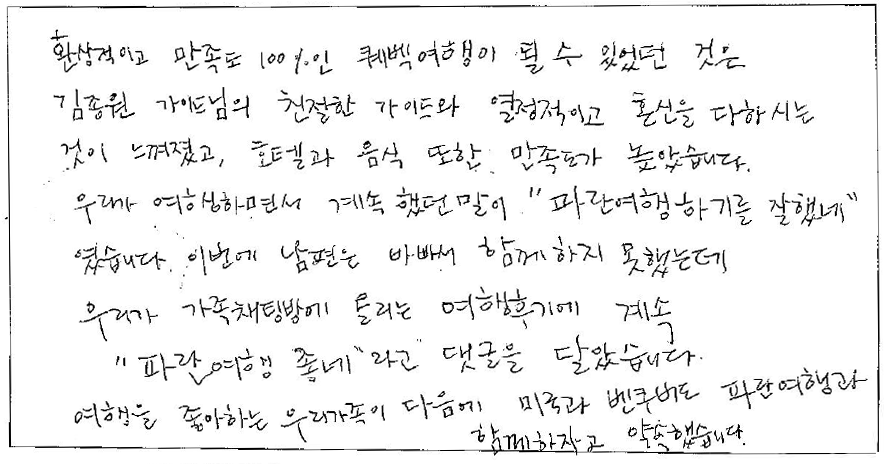 환상적이고 만족도 100%인 퀘벡여행이 될 수 있었던 것은
김종원 가이드님의 친절한 가이드와 열정적이고 혼신을 다하시는
것이 느껴졌고, 호텔과 음식 또한 만족도가 높았습니다.
우리가 여행하면서 계속 했던 말이 "파란여행하기를 잘했네"
였습니다. 이번에 남편은 바빠서 함께하지 못했는데
우리가 가족채팅방에 올리는 여행후기에 계속
"파란여행 좋네"라고 댓글을 달았습니다.
여행을 좋아하는 우리가족이 다음에 미국과 벤쿠버도 파란여행과
함께하자고 약속했습니다.